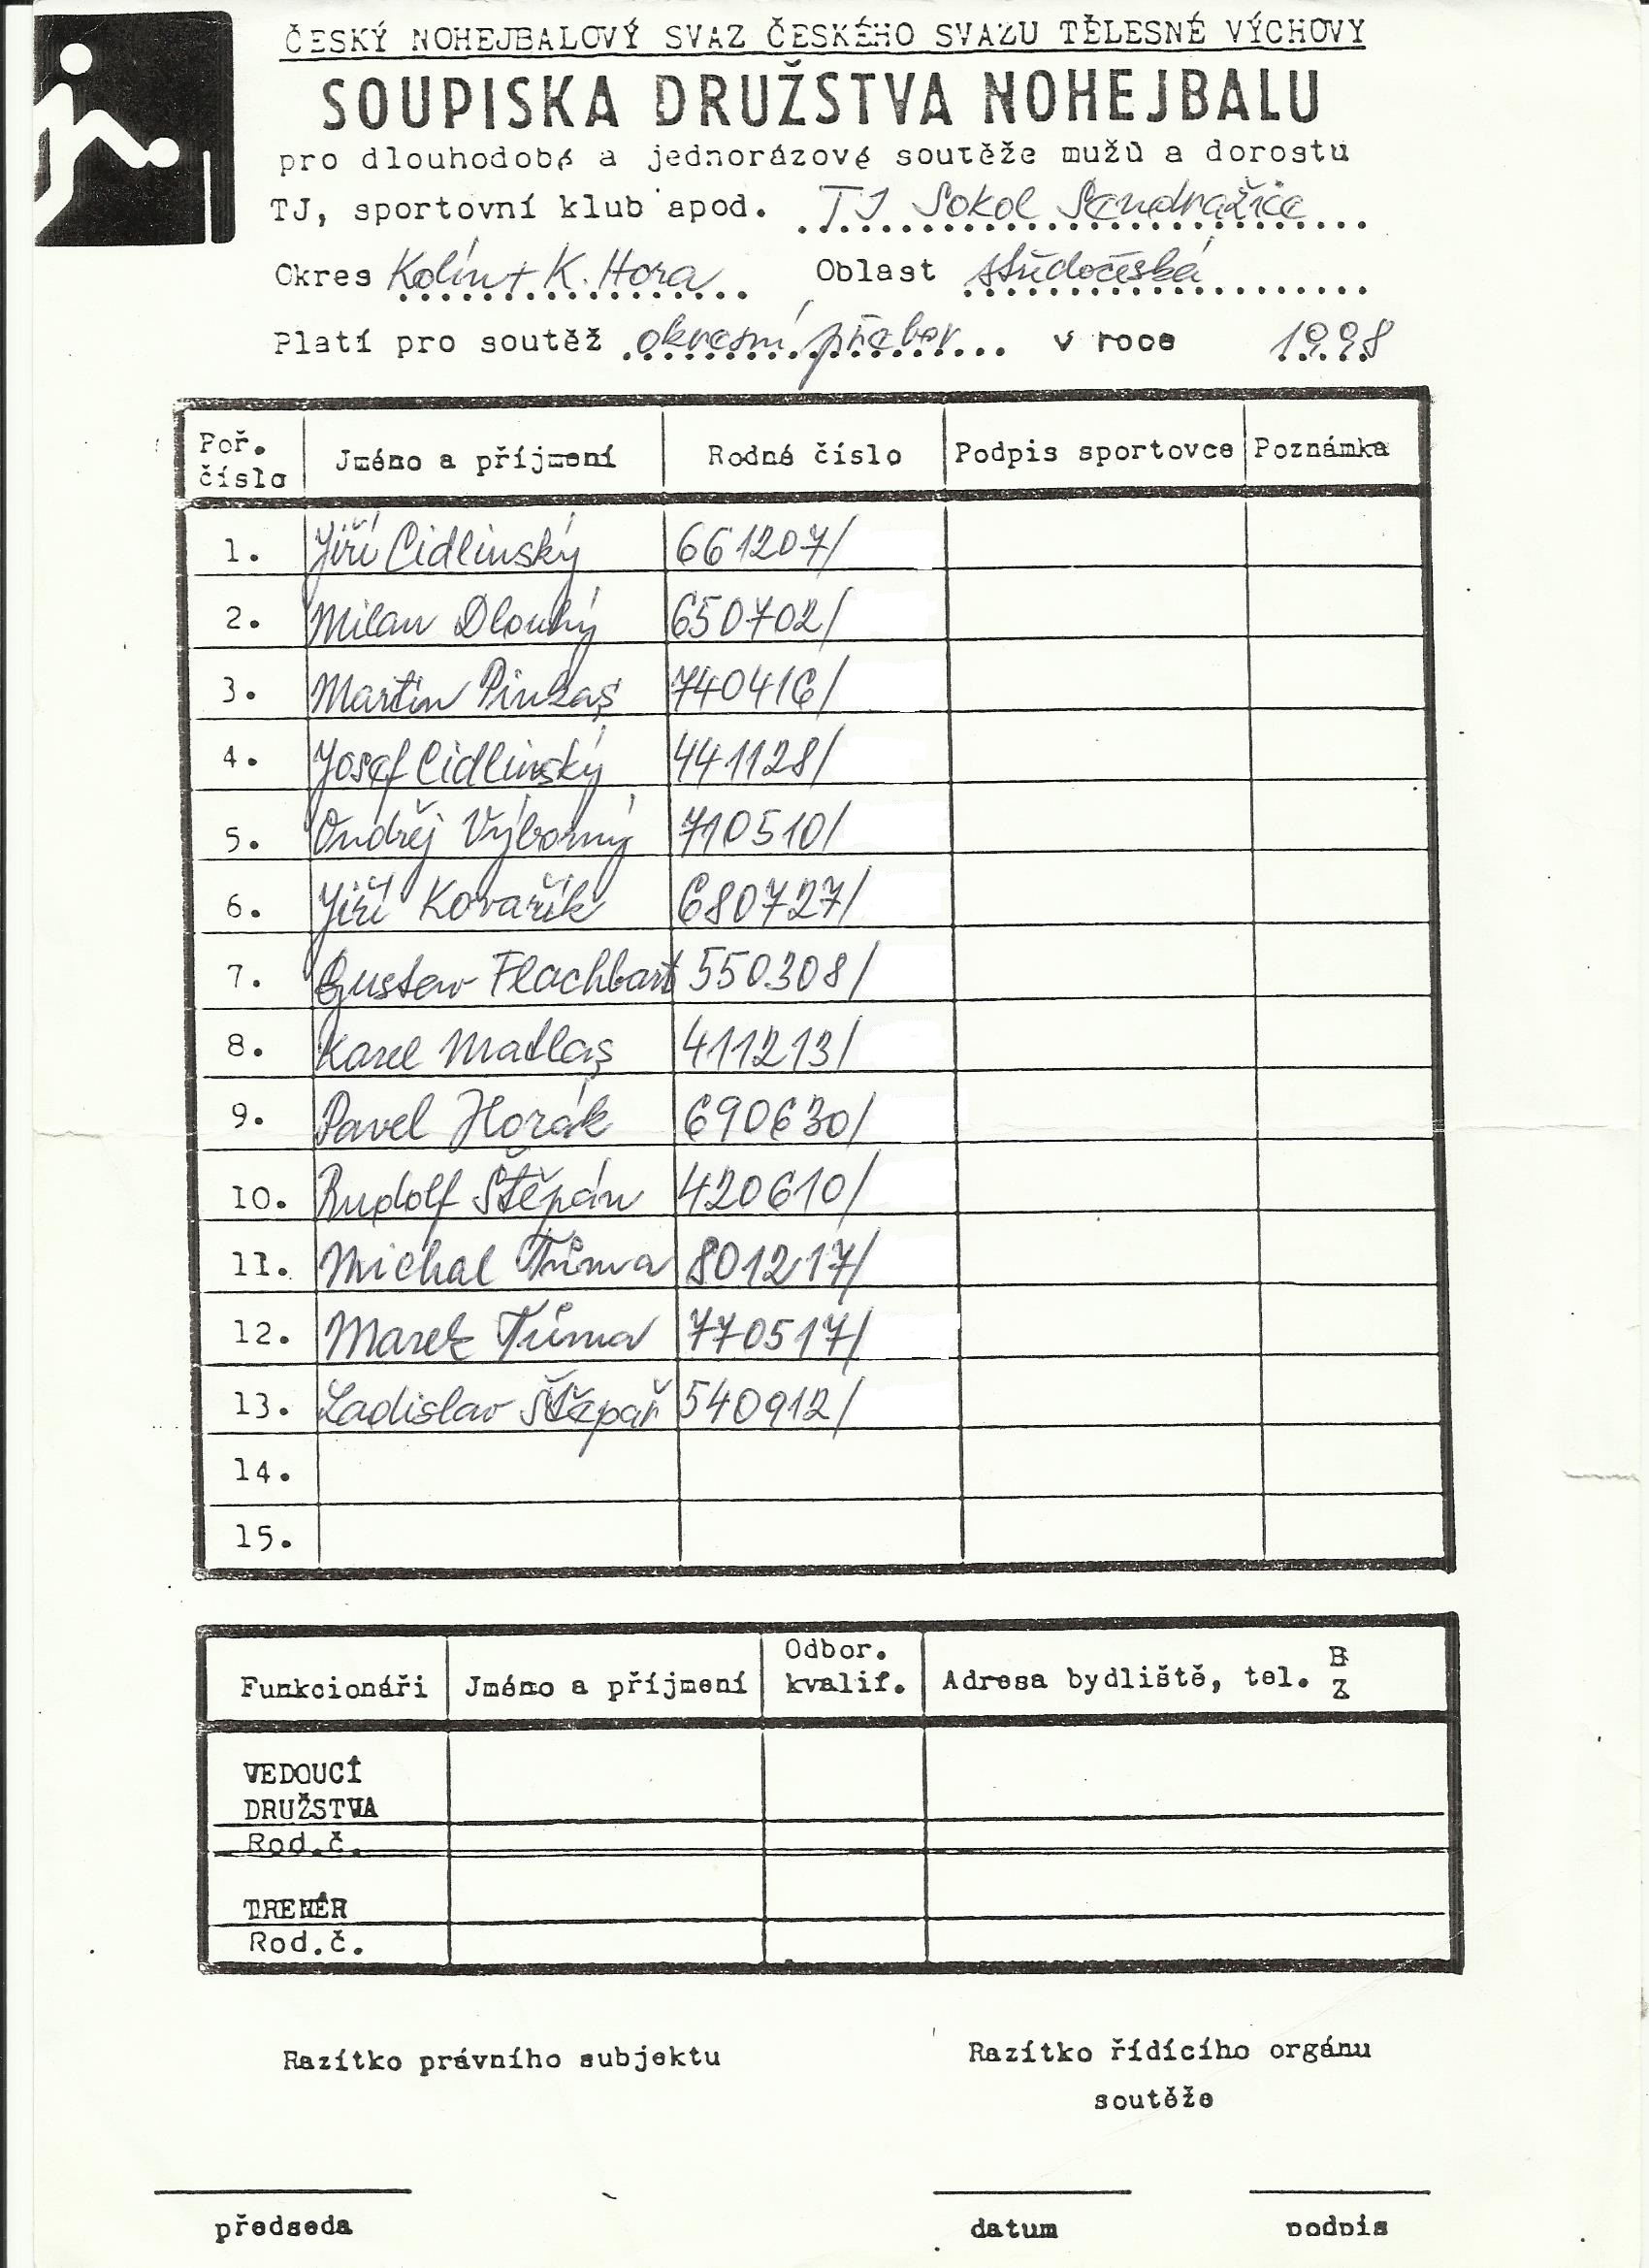 ČESKÝ NOHEJBALOVÝ SVAZ ČESKÉHO SVAZU TĚLESNÉ VÝCHOVY
SOUPISKA DRUŽSTVA NOHEJBALU
pro dlouhodobé a jednorázové soutěže mužů a dorostu
TJ, sportovní klub apod. TJ Sokol Sendražice
Okres Kolín + K. Hora Oblast středočeská
Platí pro soutěž okresní přebor v roce 1998
Poř. číslo Jméno a příjmení Rodné číslo Podpis sportovce Poznámka
1. Jiří Cidlinský 661207/
2. Milan Dlouhý 650702/
3. Martin Pinkas 740416/
4. Josef Cidlinský 441128/
5. Ondřej Výborný 710510/
6. Jiří Kovařík 680727/
7. Gustav Flachbart 550308/
8. Karel Matlas 411213/
9. Pavel Horák 690630/
10. Rudolf Štěpán 420610/
11. Michal Tůma 801217/
12. Marek Tůma 770517/
13. Ladislav Štěpař 540912/
14.
15.
Funkcionáři Jméno a příjmení Odbor. kvalif. Adresa bydliště, tel. B Z
VEDOUCÍ
DRUŽSTVA
Rod.č.
TRENÉR
Rod.č.
Razítko právního subjektu Razítko řídícího orgánu
soutěže
předseda datum podpis